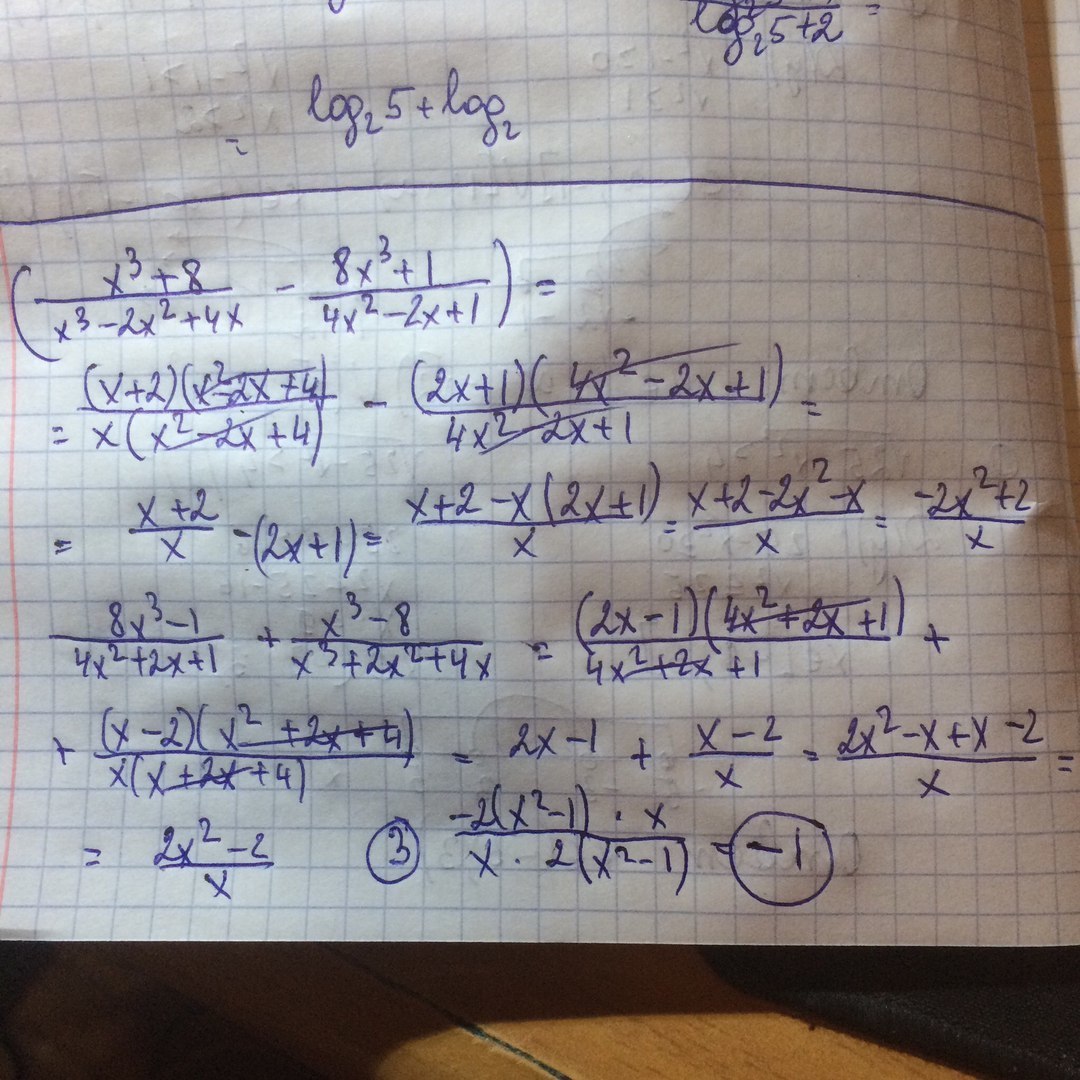 log₂5+2 =
= log₂5 + log₂
(x³+8)/(x³-2x²+4x) - (8x³+1)/(4x²-2x+1)) =
= (x+2)(x²-2x+4)/x(x²-2x+4) - (2x+1)(4x²-2x+1)/4x²-2x+1 =
= (x+2)/x -(2x+1) = (x+2-x(2x+1))/x = (x+2-2x²-x)/x = (-2x²+2)/x
(8x³-1)/(4x²+2x+1) + (x³-8)/(x³+2x²+4x) = (2x-1)(4x²+2x+1)/4x²+2x+1 +
+ (x-2)(x²+2x+4)/x(x+2x+4) = 2x-1 + (x-2)/x = (2x²-x+x-2)/x =
= (2x²-2)/x ③ -2(x²-1)·x/x·2(x²-1) = -1